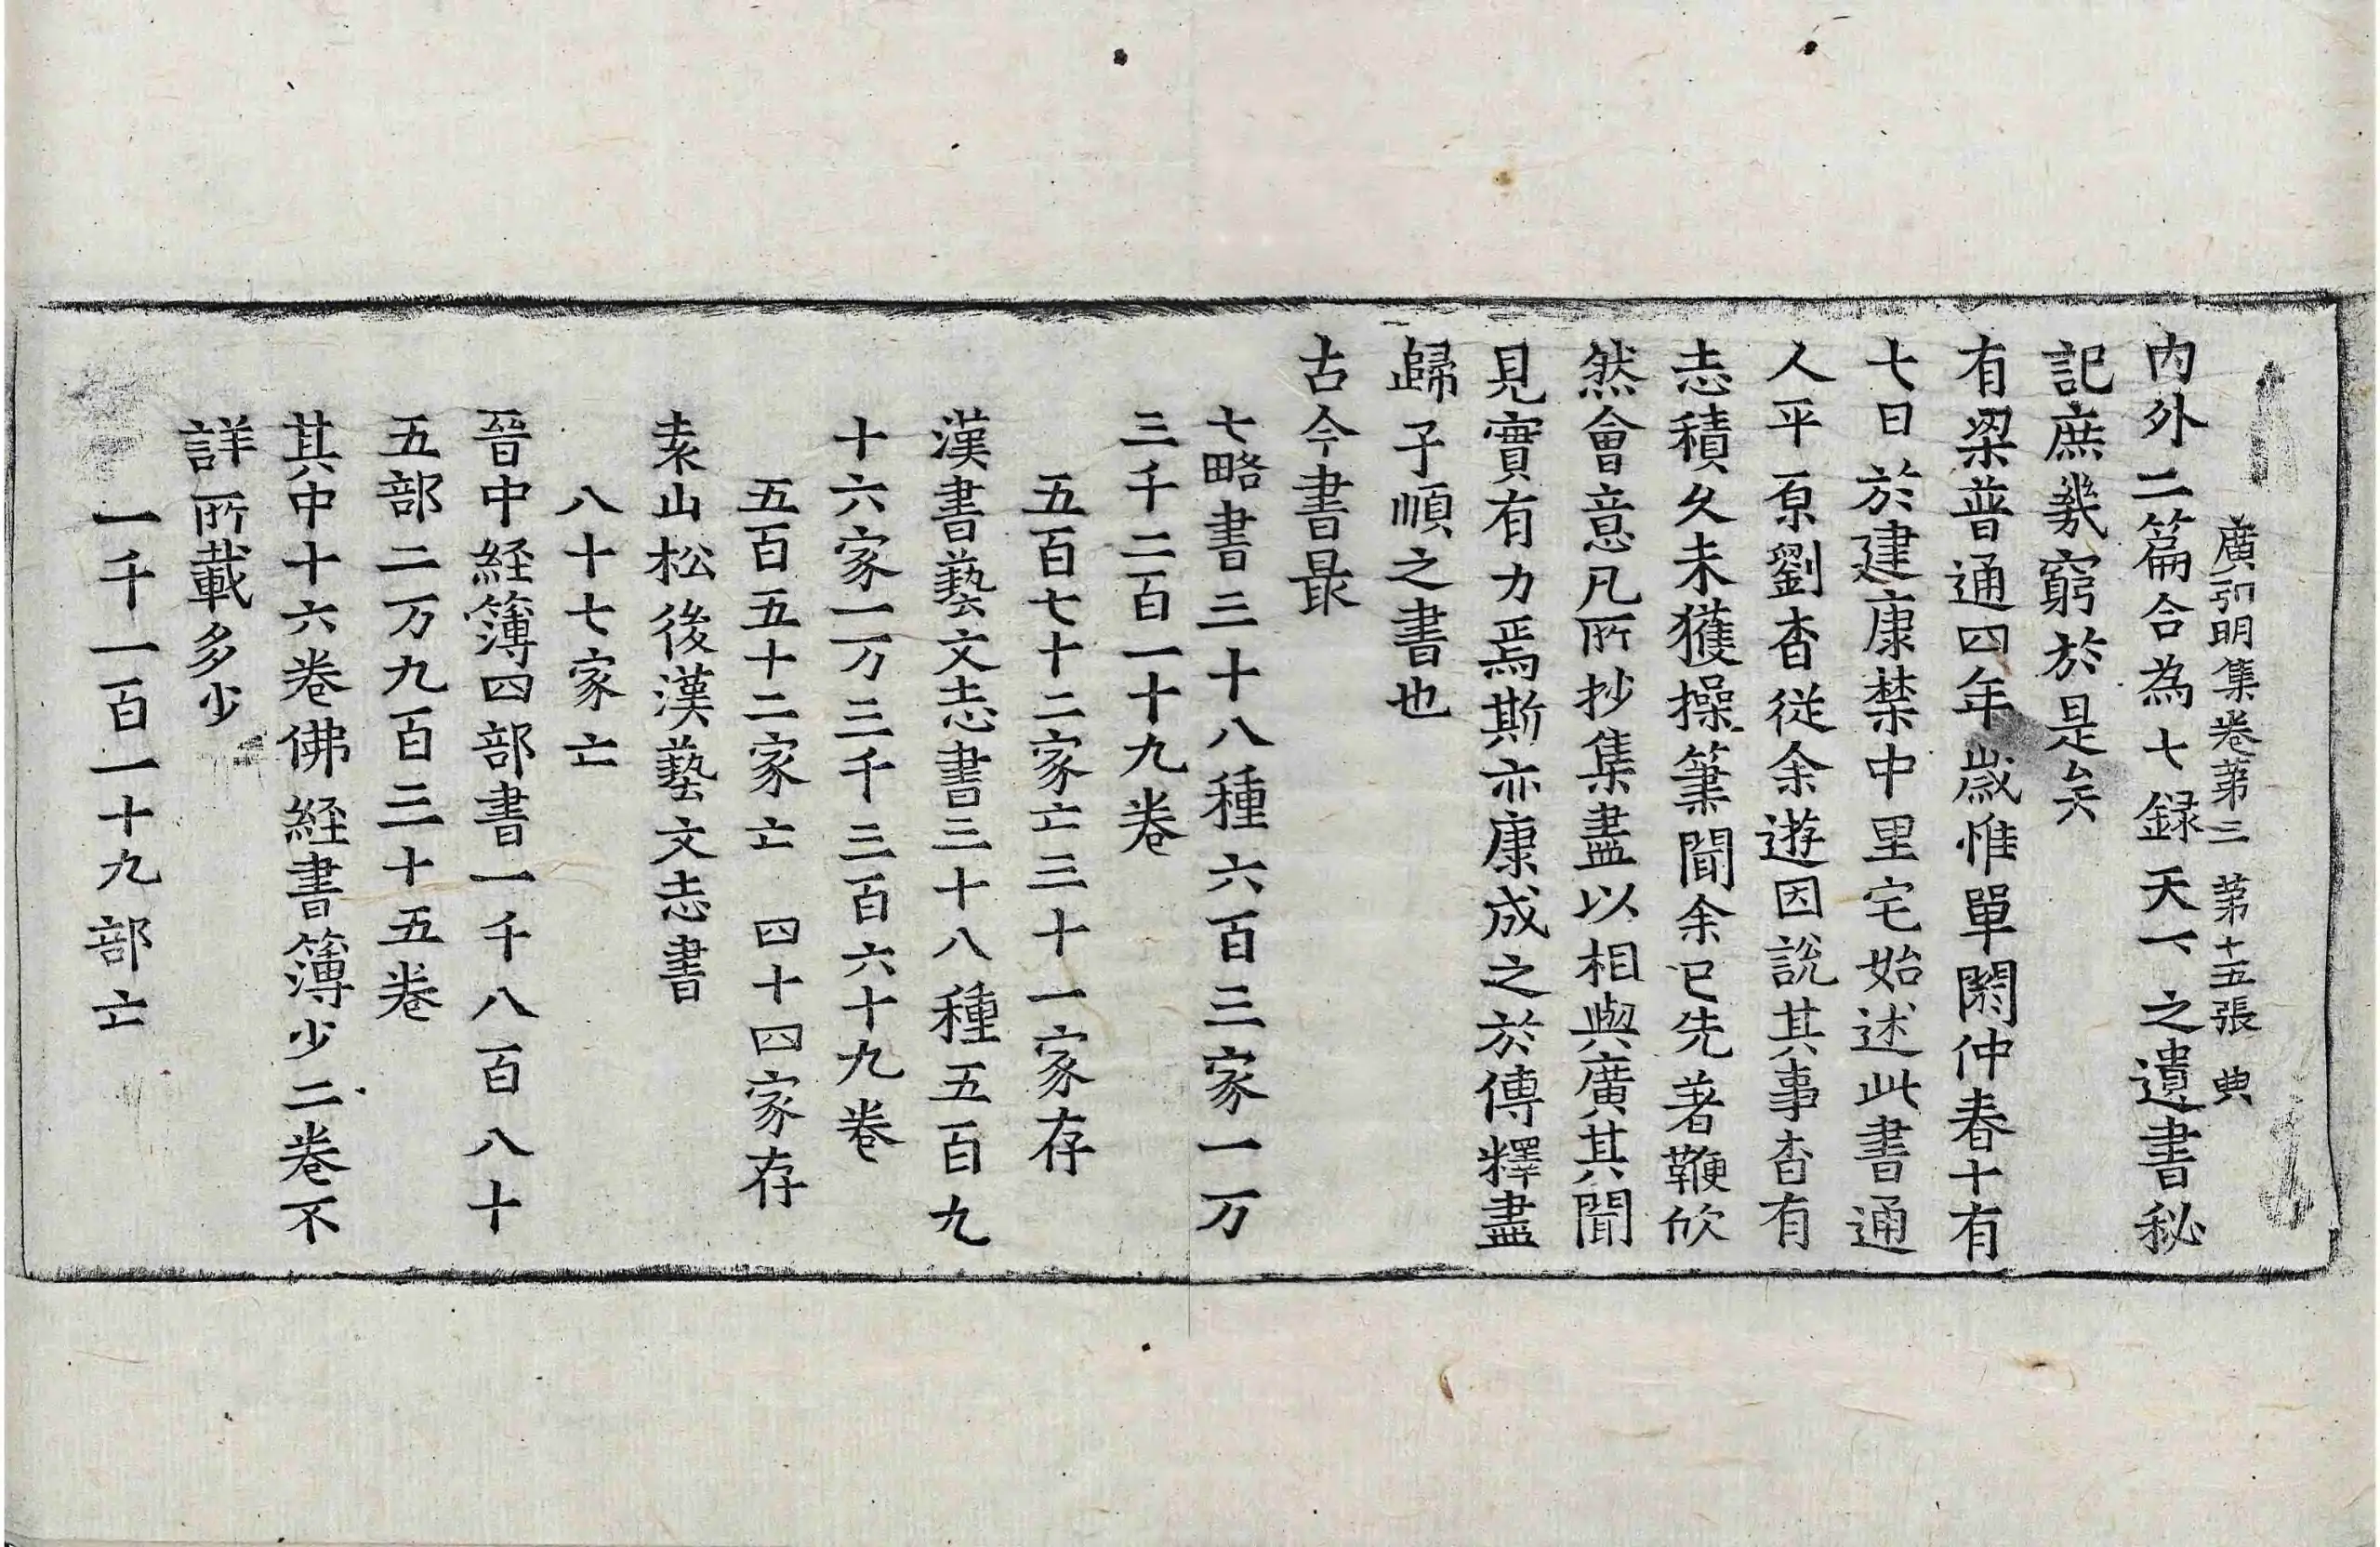 廣弘明集卷第三 第十五張 典
內外二篇合為七録天下之遺書秘
記庶幾窮於是矣
有梁普通四年歲惟單閼仲春十有
七日於建康禁中里宅始述此書通
人平原劉杳従余遊因說其事杳有
志積久未獲操筆聞余已先著鞭欣
然會意凡所抄集盡以相與廣其聞
見實有力焉斯亦康成之於傳釋盡
歸子順之書也
古今書最
七略書三十八種六百三家一万
三千二百一十九卷
五百七十二家亡三十一家存
漢書藝文志書三十八種五百九
十六家一万三千三百六十九卷
五百五十二家亡 四十四家存
袁山松後漢藝文志書
八十七家亡
晉中経簿四部書一千八百八十
五部二万九百三十五卷
其中十六卷佛経書簿少二卷不
詳所載多少
一千一百一十九部亡